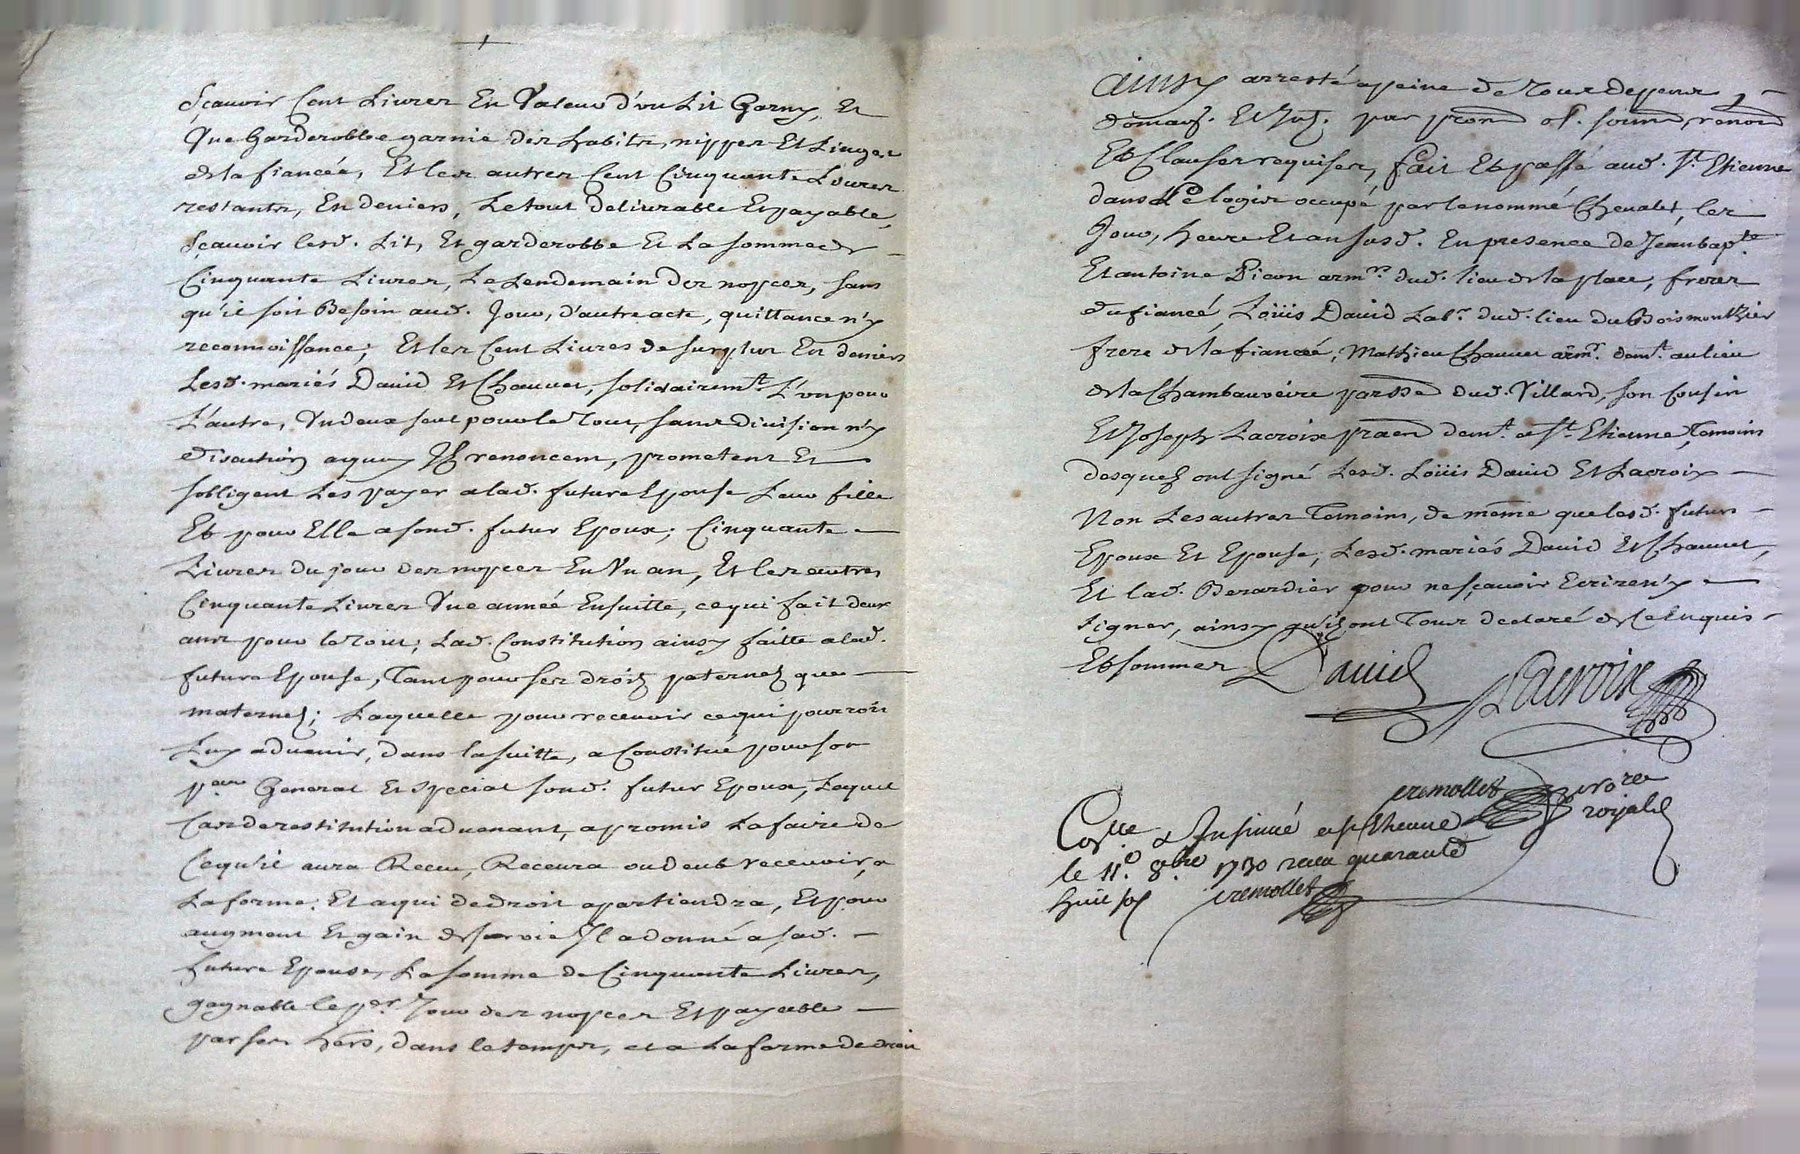 Sçauoir Cent Liures En Valeur d'vn Lit Garny, Et
Vne Garderobbe garnie des habits, nippes Et Linges
de la fiancée, Et les autres Cent Cinquante Liures
restants, En deniers, Le tout deliurable Et payable,
Sçauoir lesd. Lit, Et garderobbe Et La somme de
Cinquante Liures, Le Lendemain des nopces, sans
qu'il soit Besoin aud. Jour, d'autre acte, quittance n'y
reconnoissance; Et les Cent Liures de surplus En deniers
Lesd. mariés Dauid Et Chauuet, solidairemt. L'vn pour
L'autre, Vn d'eux seul pour le Tout, sans diuision n'y
discution aquoy Ils renoncent, prometent Et
sobligent Les payer a lad. future Epouse Leur fille
Et pour Elle a sond. futur Epoux; Cinquante
Liures du jour des nopces En Vn an, Et les autres
Cinquante Liures Vne année Ensuitte, ce qui fait deux
ans pour le Tout; Lad. Constitution ainsy faitte a lad.
future Epouse, Tant pour ses droitz paternelz que
maternelz; Laquelle pour receuoir ce qui pourroit
Luy aduenir, dans la suitte, a Constitué pour son
peur General Et special sond. futur Epoux, Lequel
Cas de restitution aduenant, a promis La faire de
Ce qu'il aura Receu, Receura ou deub receuoir, a
La forme, Et a qui de droit apartiendra, Et pour
augment Et gain de suruie Il a donné a sad.
future Epouse, La somme de Cinquante Liures,
gagnable le per. Jour des nopces Et payable
par ses hers, dans le temps, et a La forme de droit
ainsy arresté a peine de Tous depens
domags. Et Jnts. par promd. of. soumd. renond.
Et Clauses requises, fait Et passé aud. St. Etienne
dans Le logis occupé par le nommé Cheualet, les
Jour, heure Et an susd. En presence de Jean bapte.
Et antoine Picon armrs. dud. lieu de la place, freres
du fiancé, Loüis Dauid Labr. dud. lieu du Bois monthier
frere de la fiancée, Mathieu Chauuet armr. demt. au lieu
de la Chambauoeire parsse dud. Villard, son Cousin
Et Joseph Lacroix praen demt. a St. Etienne, Temoins
desquelz ont signé Lesd. Loüis Dauid Et Lacroix
Non Les autres Temoins, de même que lesd. futurs
Epoux Et Epouse, Lesd. mariés Dauid Et Chauuet,
Et lad. Berardier pour ne sçauoir Ecrire n'y
signer, ainsy qu'ilz ont Tous declaré de Ce Enquis
Et sommes Dauid Lacroix
cremollet nore
royal
Collé & Insinué a St. Etienne
le 11e. 8bre 1730 receu quarante
huit sols cremollet